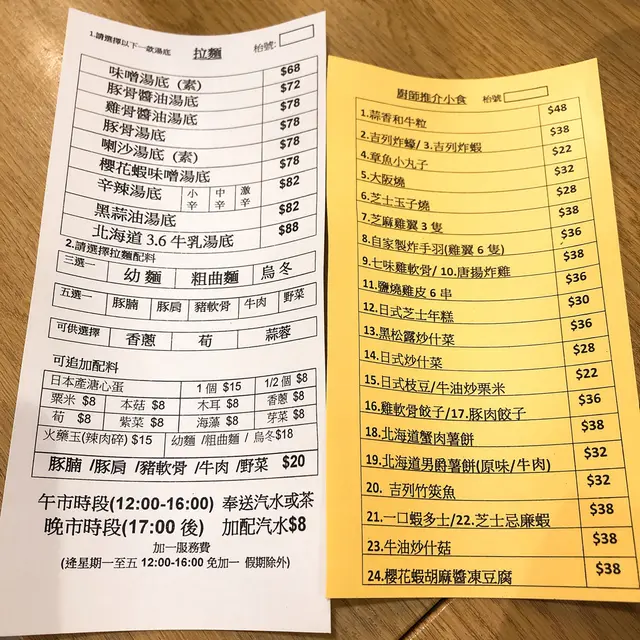 1.請選擇以下一款湯底 拉麵 枱號:
味噌湯底 (素) $68
豚骨醬油湯底 $72
雞骨醬油湯底 $78
豚骨湯底 $78
喇沙湯底 (素) $78
櫻花蝦味噌湯底 $78
辛辣湯底 小辛 中辛 激辛 $82
黑蒜油湯底 $82
北海道 3.6 牛乳湯底 $88
2.請選擇拉麵配料
三選一 幼麵 粗曲麵 烏冬
五選一 豚腩 豚肩 豬軟骨 牛肉 野菜
可供選擇 香蔥 荀 蒜蓉
可追加配料
日本產溏心蛋 1 個 $15 1/2 個 $8
粟米 $8 本菇 $8 木耳 $8 香蔥 $8
荀 $8 紫菜 $8 海藻 $8 芽菜 $8
火藥玉(辣肉碎) $15 幼麵 /粗曲麵 / 烏冬$18
豚腩 /豚肩 /豬軟骨 /牛肉 /野菜 $20
午市時段(12:00-16:00) 奉送汽水或茶
晚市時段(17:00 後) 加配汽水$8
加一服務費
(逢星期一至五 12:00-16:00 免加一 假期除外)
廚師推介小食 枱號
1.蒜香和牛粒 $48
2.吉列炸蠔/ 3.吉列炸蝦 $38
4.章魚小丸子 $22
5.大阪燒 $32
6.芝士玉子燒 $28
7.芝麻雞翼 3 隻 $38
8.自家製炸手羽(雞翼 6 隻) $36
9.七味雞軟骨/ 10.唐揚炸雞 $38
11.鹽燒雞皮 6 串 $36
12.日式芝士年糕 $30
13.黑松露炒什菜 $36
14.日式炒什菜 $28
15.日式枝豆/牛油炒粟米 $22
16.雞軟骨餃子/17.豚肉餃子 $36
18.北海道蟹肉薯餅 $38
19.北海道男爵薯餅(原味/牛肉) $32
20. 吉列竹筴魚 $32
21.一口蝦多士/22.芝士忌廉蝦 $38
23.牛油炒什菇 $38
24.櫻花蝦胡麻醬凍豆腐 $38